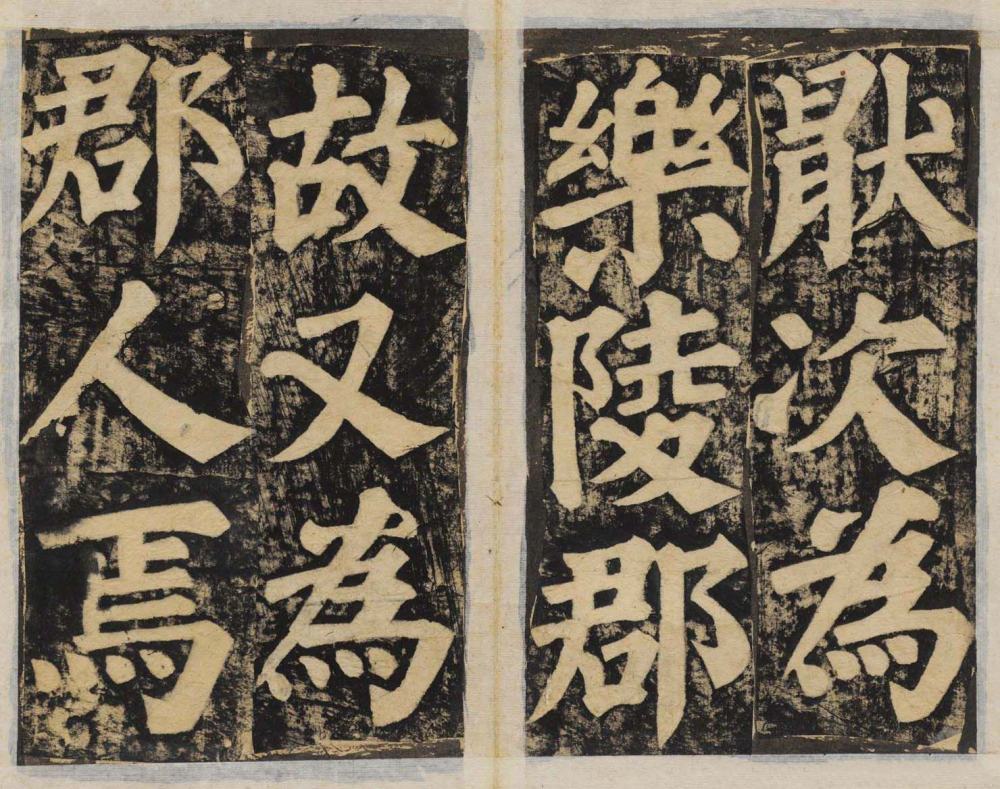 猒次為
樂陵郡
故又為
郡人焉